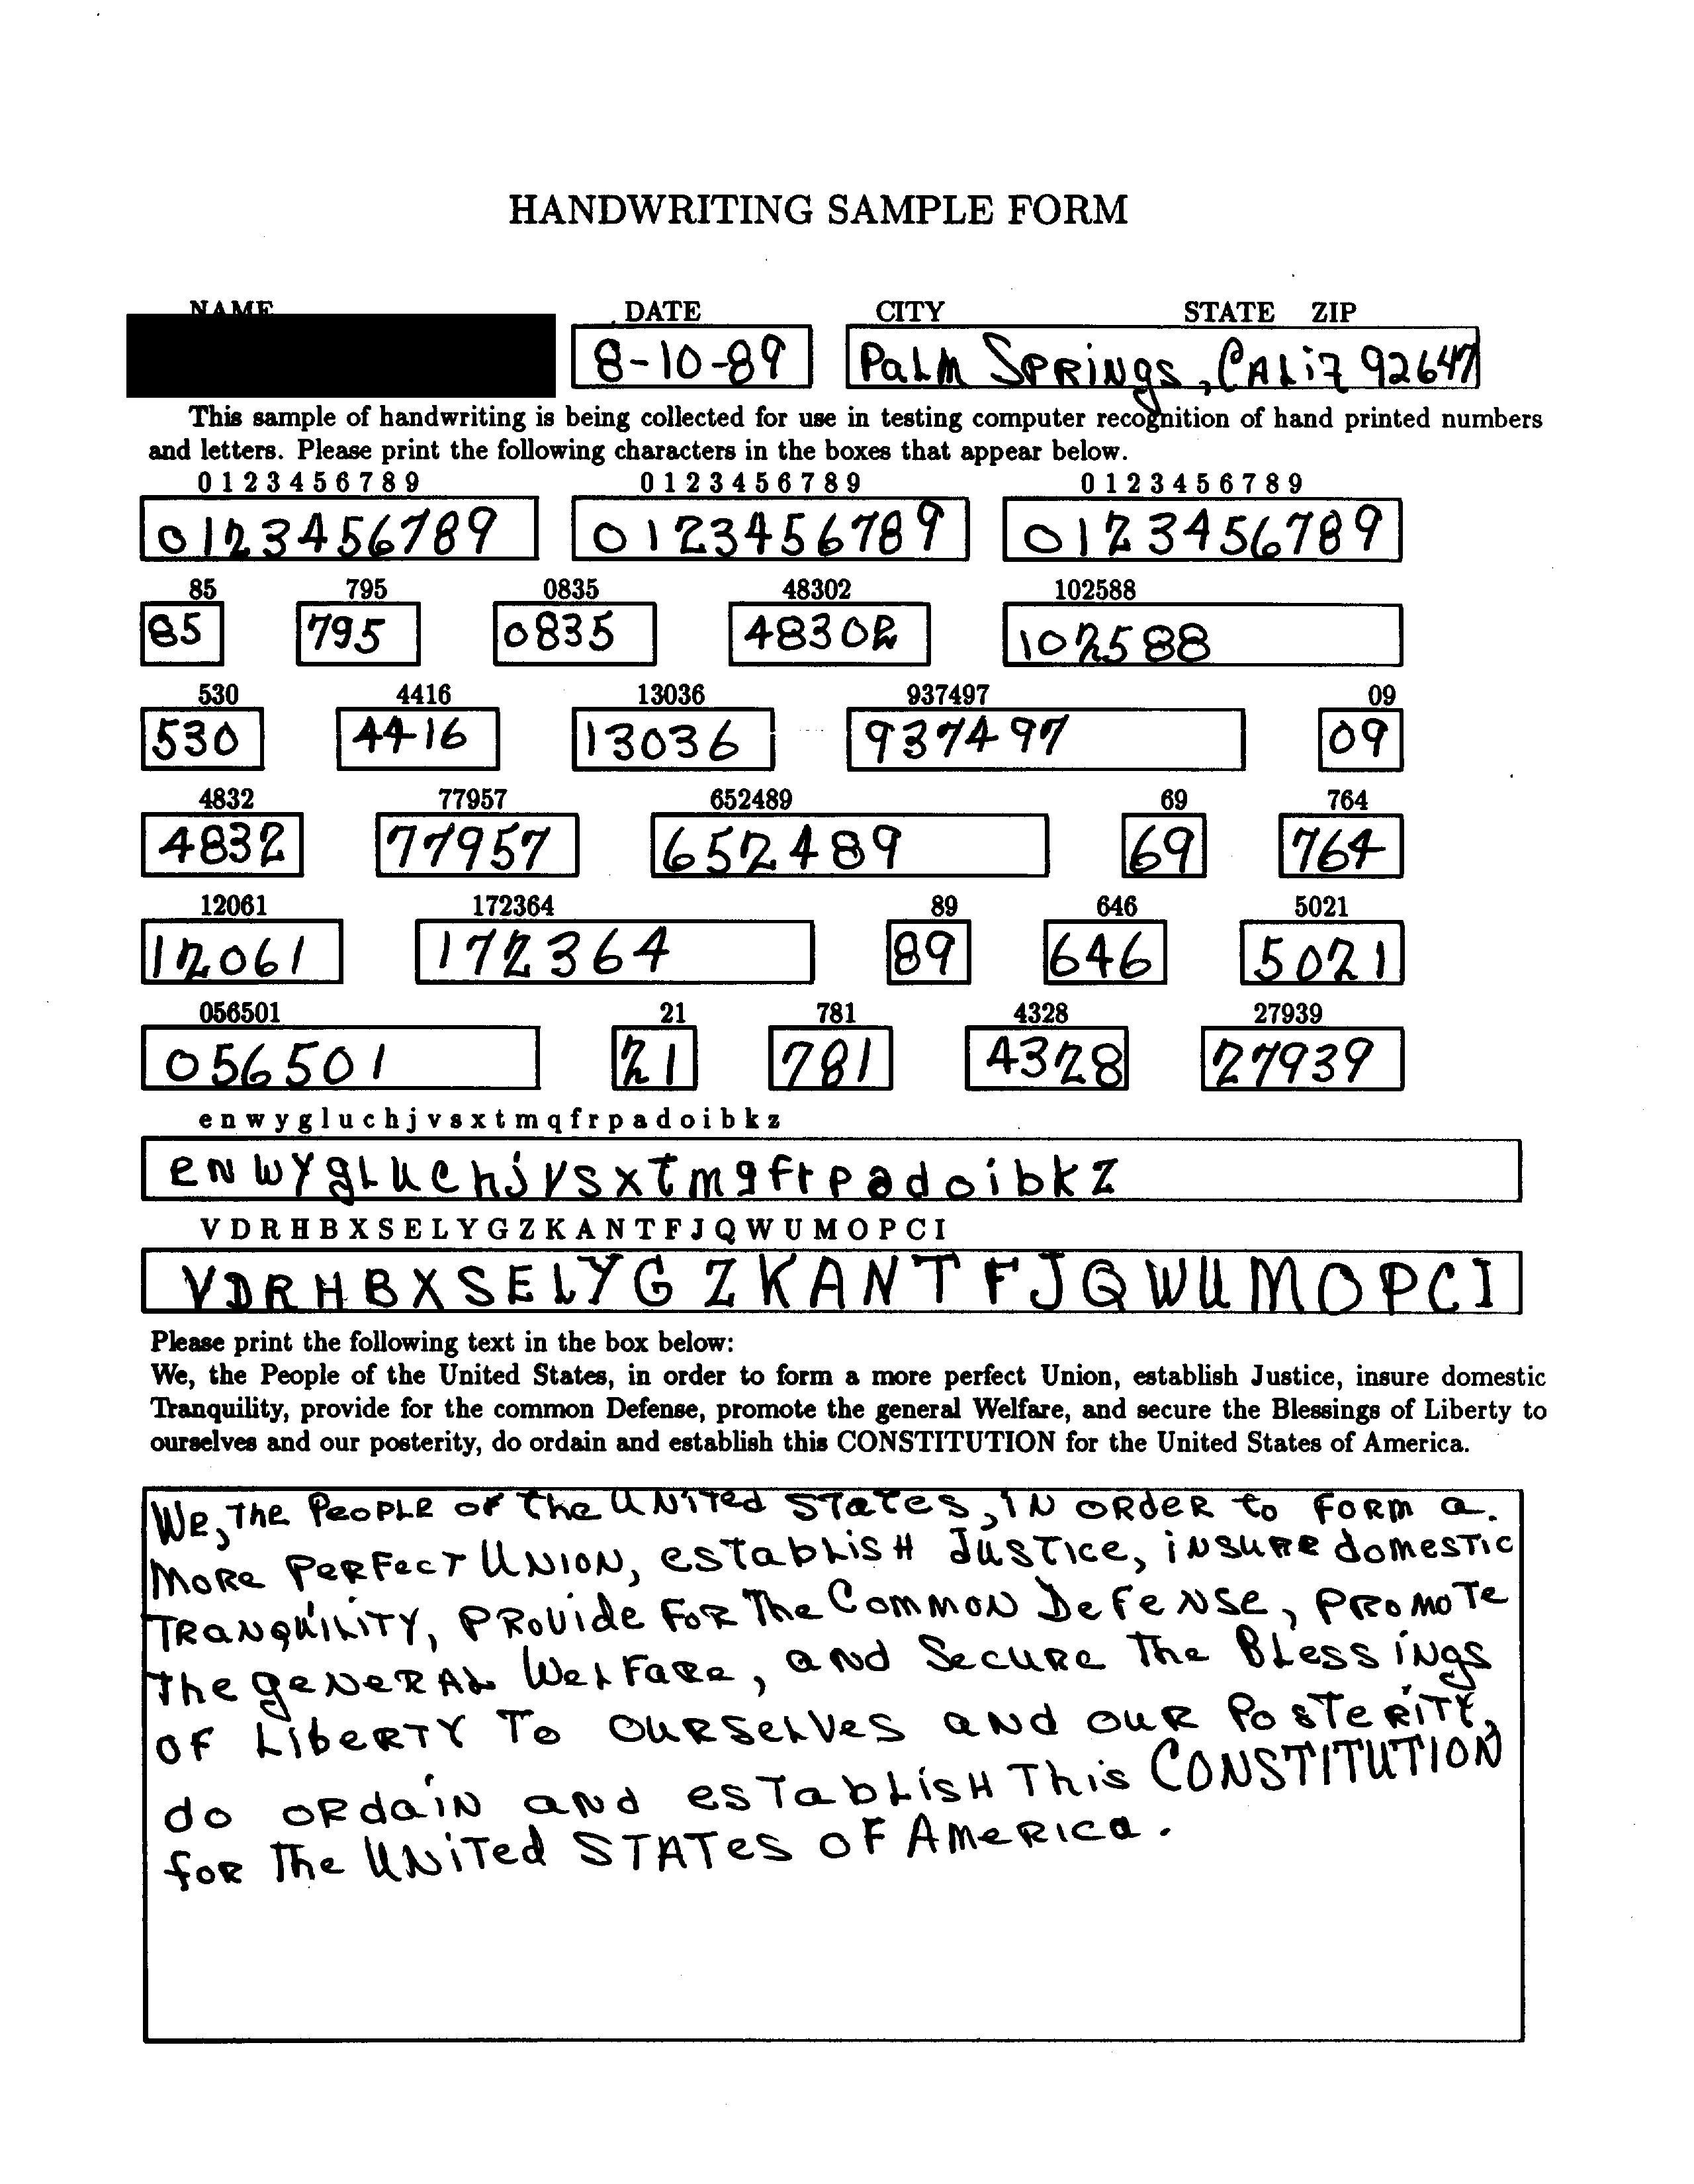 HANDWRITING SAMPLE FORM
NAME DATE CITY STATE ZIP
8-10-89 PaLM SPRiNgs, CALif 92647
This sample of handwriting is being collected for use in testing computer recognition of hand printed numbers
and letters. Please print the following characters in the boxes that appear below.
0 1 2 3 4 5 6 7 8 9 0 1 2 3 4 5 6 7 8 9 0 1 2 3 4 5 6 7 8 9
0123456789 0123456789 0123456789
85 795 0835 48302 102588
85 795 0835 48302 102588
530 4416 13036 937497 09
530 4416 13036 937497 09
4832 77957 652489 69 764
4832 77957 652489 69 764
12061 172364 89 646 5021
12061 172364 89 646 5021
056501 21 781 4328 27939
056501 21 781 4328 27939
e n w y g l u c h j v s x t m q f r p a d o i b k z
e N w y g L u c h j v s x t m q f r p a d o i b k z
V D R H B X S E L Y G Z K A N T F J Q W U M O P C I
V D R H B X S E L Y G Z K A N T F J Q W U M O P C I
Please print the following text in the box below:
We, the People of the United States, in order to form a more perfect Union, establish Justice, insure domestic
Tranquility, provide for the common Defense, promote the general Welfare, and secure the Blessings of Liberty to
ourselves and our posterity, do ordain and establish this CONSTITUTION for the United States of America.
We, The PeoPLe oF the UNiTed STaTes, iN ORdeR to FoRm a.
MoRe PeRFecT UNION, esTabLisH JusTice, iNsuRe domesTic
TRaNquiLiTY, PRoVide FoR The CommoN DeFeNse, PRomoTe
The geNeRAL WeLFaRe, aNd SecuRe The BLessiNgs
OF LibeRTY To OuRseLVes aNd ouR PosTeRiTY,
do oRdaiN aNd esTabLisH This CONSTITUTION
foR The UNiTed STATes OF AmeRica.